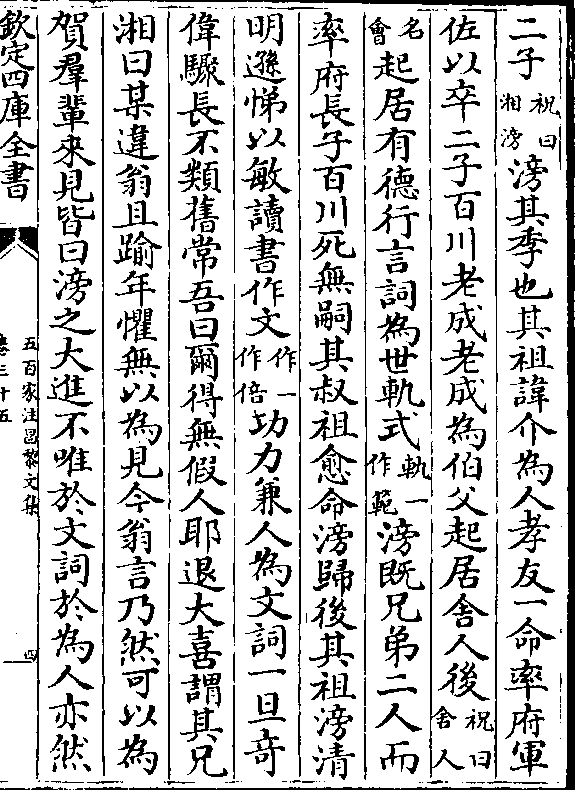 二子祝曰湘滂滂其季也其祖諱介為人孝友一命率府軍
佐以卒二子百川老成老成為伯父起居舍人後祝曰舍人
名會起居有德行言詞為世軌式軌一作範滂既兄弟二人而
率府長子百川死無嗣其叔祖愈命滂歸後其祖滂清
明遜悌以敏讀書作文作一作倍功力兼人為文詞一旦奇
偉驟長不類舊常吾曰爾得無假人耶退大喜謂其兄
湘曰某違翁且踰年懼無以為見今翁言乃然可以為
賀羣輩來見皆曰滂之大進不唯於文詞於為人亦然
欽定四庫全書
五百家注昌黎文集
卷三十五
四